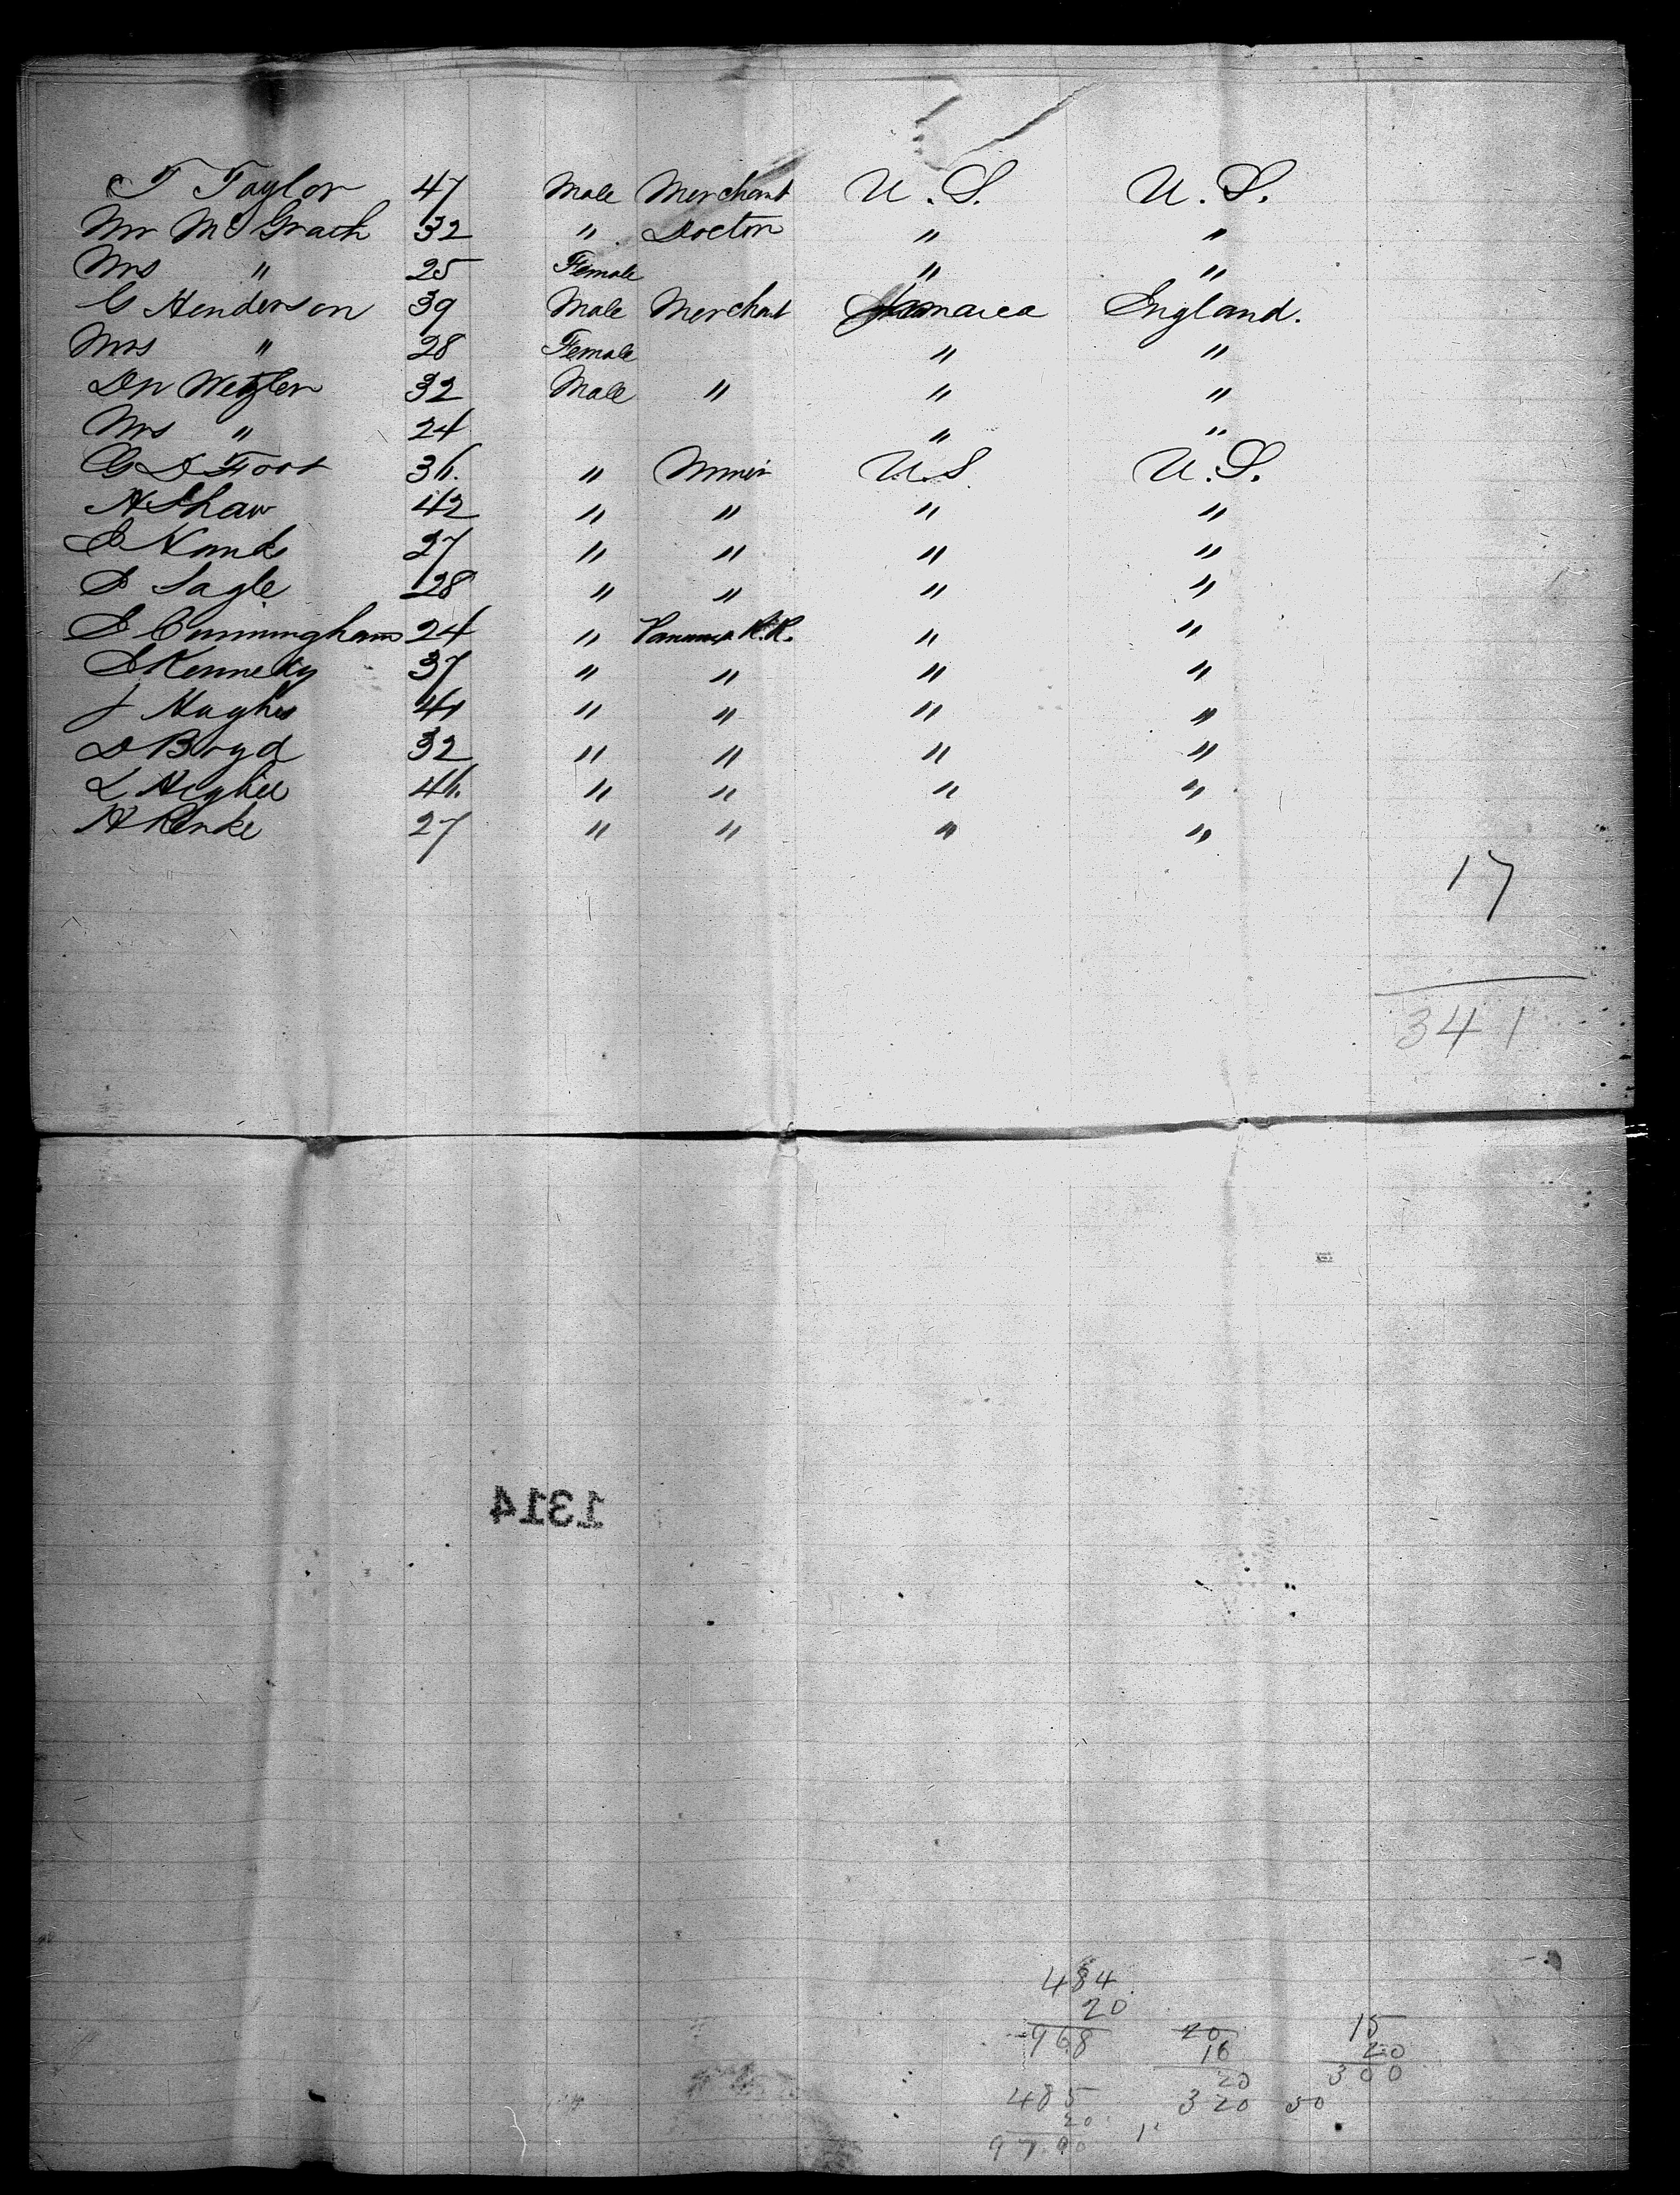 T Taylor 47 Male Merchant U.S. U.S.
Mr McGrath 32 " Doctor " "
Mrs " 25 Female " "
G Henderson 39 Male Merchant Jamaica England.
Mrs " 28 Female " "
Dr Wetzler 32 Male " " "
Mrs " 24 " "
G D Foot 36. " Miner U.S. U.S.
H Shaw 42 " " " "
27 " " " "
S Sagle 28 " " " "
S Cunningham 24 " Panama R.R. " "
S Kennedy 37 " " " "
J Hughes 41 " " " "
D Boyd 32 " " " "
L 46. " " " "
H 27 " " " "
17
341
1314
484
20
968
20
16
20
320
15
20
300
50
485
20
9700